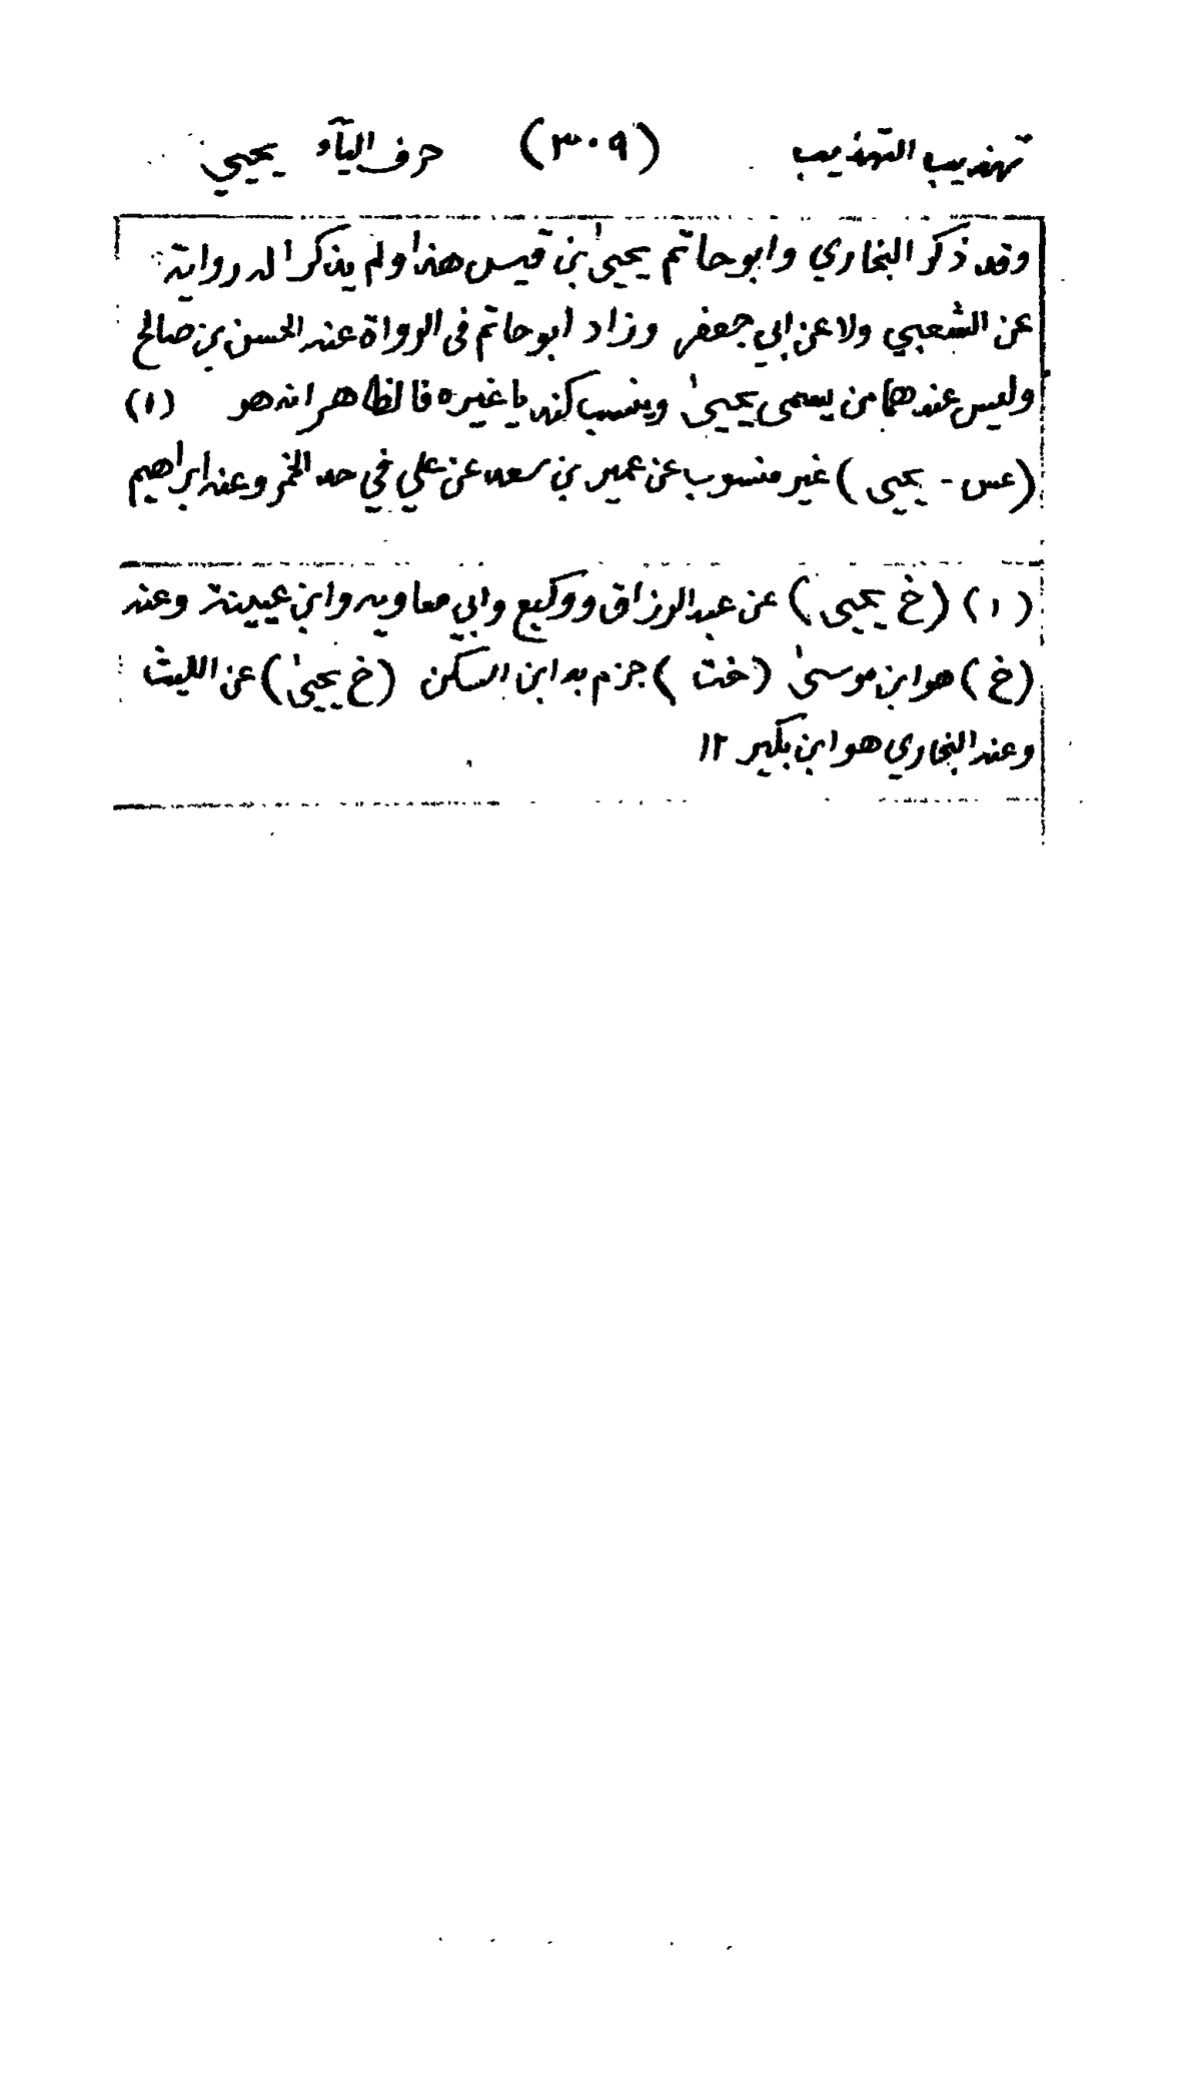 تهذيب التهذيب (٣٠٩) حرف اليآء يحيي
وقد ذكر البخاري وابو حاتم يحيى بن قيس هذا ولم يذكرا له رواية
عن الشعبي ولا عن ابي جعفر وزاد ابو حاتم فى الرواة عنه الحسن بن صالح
وليس عندهما من يسمى يحيىٰ وينسب كنديا غيره فالظاهر انه هو (١)
(عس - يحيى) غير منسوب عن عمير بن سعد عن علي في حد الخمر وعنه ابراهيم
(١) (خ يحيى) عن عبد الرزاق ووكيع وابي معاويه وابن عيينة وعنه
(خ) هو ابن موسىٰ (خت) جزم به ابن السكن (خ يحيىٰ) عن الليث
وعنه البخاري هو ابن بكير ١٢